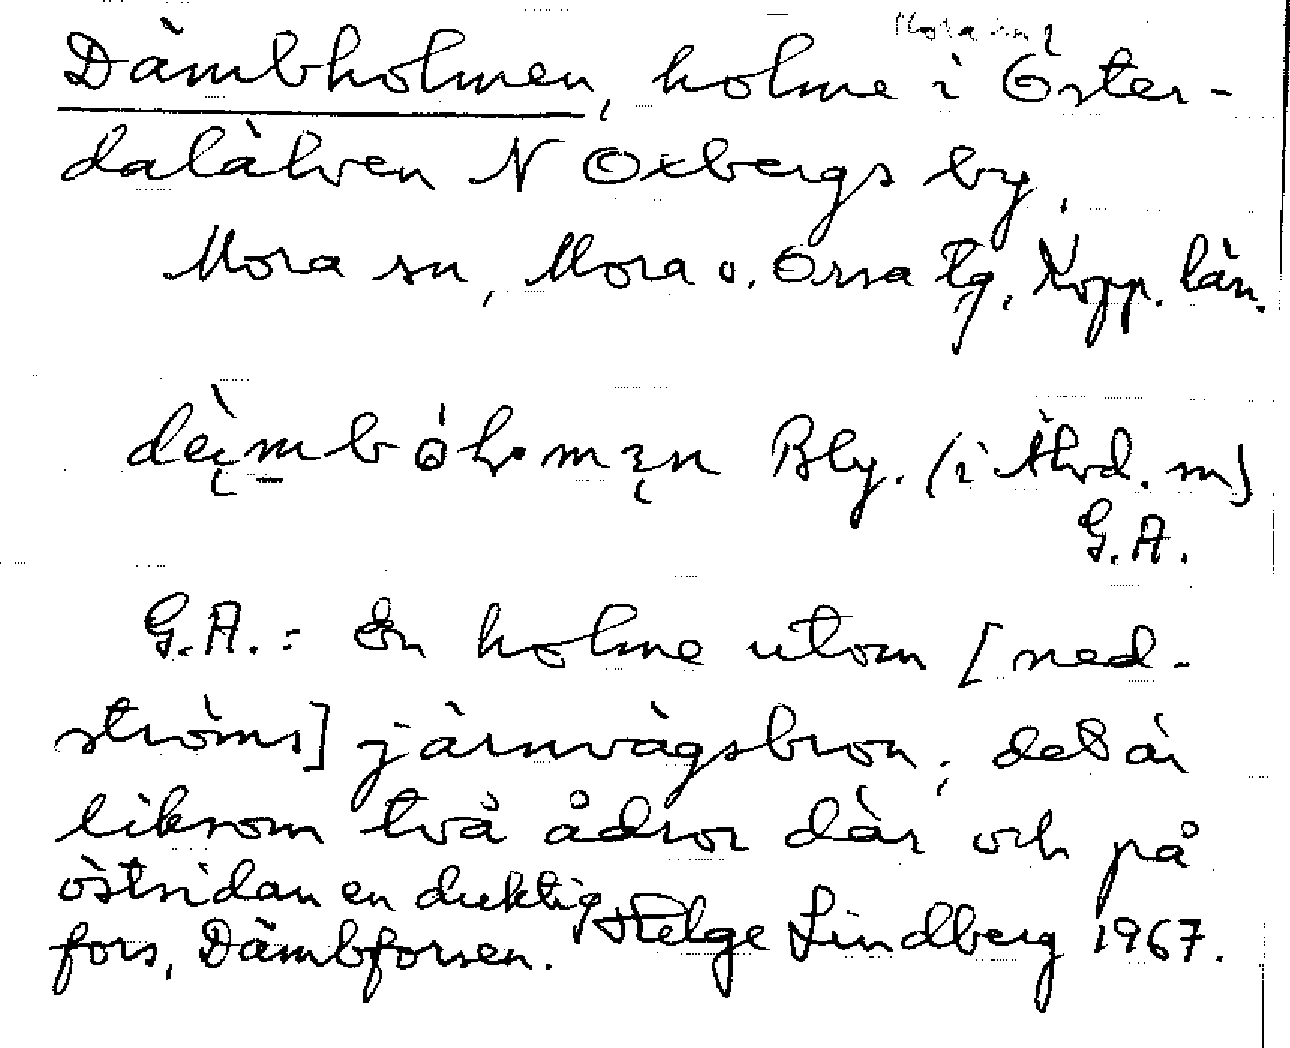 Mora sn
Dämbholmen, holme i Öster-
dalälven N Oxbergs by,
Mora sn, Mora o. Orsa tg. Kopp. län.
Bly. (i Älvd. m)
G.A.
G.A.: En holme utom [ned-
ströms] järnvägsbron; det är
liksom två ådror där och på
östsidan en duktig
fors, Dämbforsen. Helge Lindberg 1967.